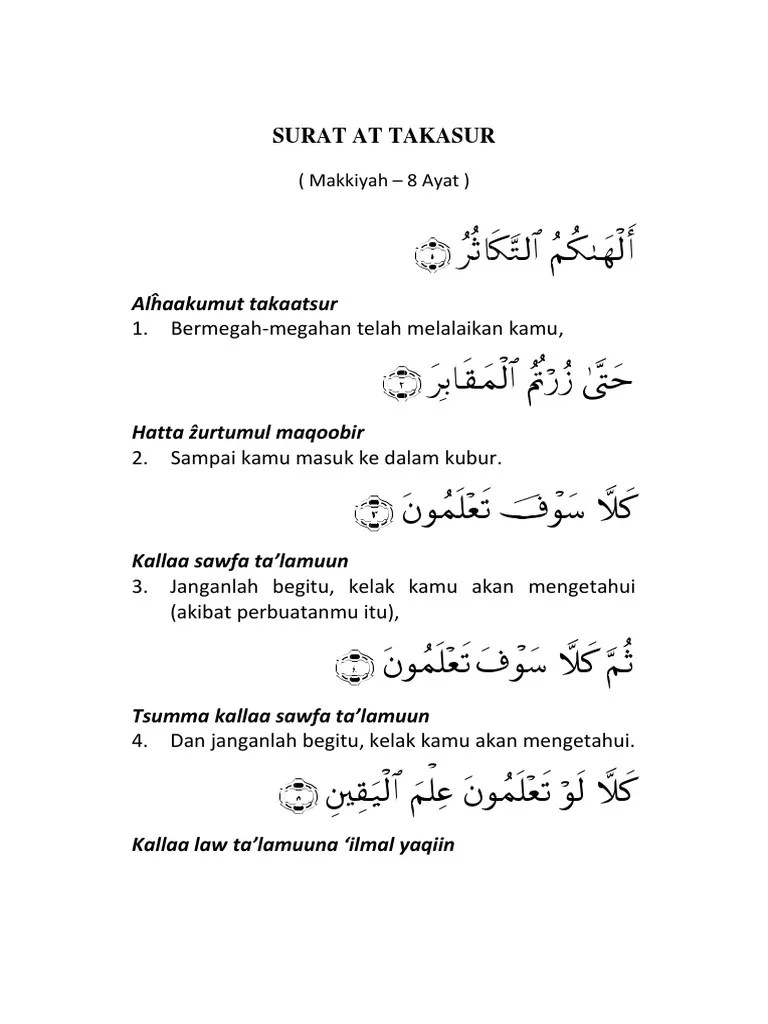 SURAT AT TAKASUR
( Makkiyah – 8 Ayat )
أَلْهَىٰكُمُ ٱلتَّكَاثُرُ
Alĥaakumut takaatsur
1. Bermegah-megahan telah melalaikan kamu,
حَتَّىٰ زُرْتُمُ ٱلْمَقَابِرَ ٢
Hatta ẑurtumul maqoobir
2. Sampai kamu masuk ke dalam kubur.
كَلَّا سَوْفَ تَعْلَمُونَ ٣
Kallaa sawfa ta’lamuun
3. Janganlah begitu, kelak kamu akan mengetahui
(akibat perbuatanmu itu),
ثُمَّ كَلَّا سَوْفَ تَعْلَمُونَ
Tsumma kallaa sawfa ta’lamuun
4. Dan janganlah begitu, kelak kamu akan mengetahui.
كَلَّا لَوْ تَعْلَمُونَ عِلْمَ ٱلْيَقِينِ
Kallaa law ta’lamuuna ‘ilmal yaqiin